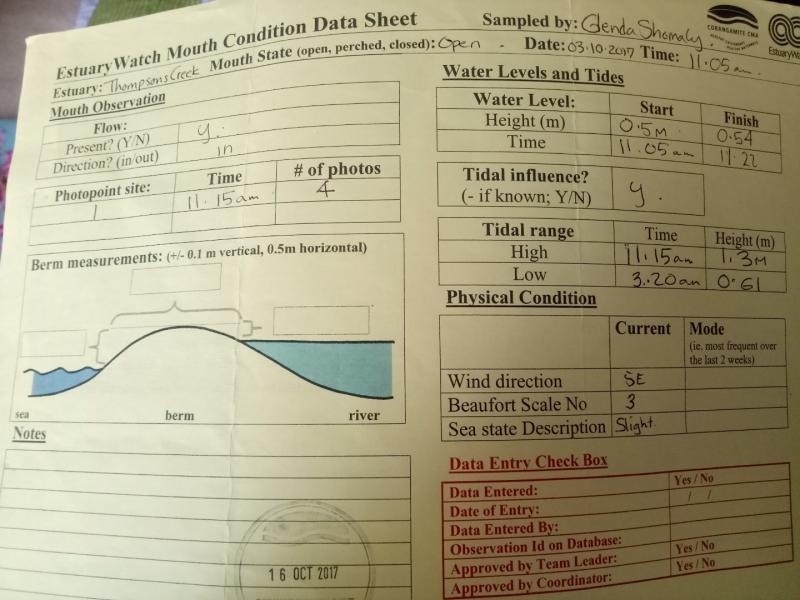 EstuaryWatch Mouth Condition Data Sheet
Sampled by: Glenda Shomaly.
CORANGAMITE CMA
EstuaryWa
Estuary: Thompsons Creek Mouth State (open, perched, closed): Open. Date: 03.10.2017 Time: 11.05am.
Mouth Observation
Flow:
Present? (Y/N) y.
Direction? (in/out) in
Photopoint site: Time # of photos
1 11.15am 4
Berm measurements: (+/- 0.1 m vertical, 0.5m horizontal)
sea berm river
Notes
16 OCT 2017
Water Levels and Tides
Water Level: Start Finish
Height (m) 0.5M 0.54
Time 11.05am 11.22
Tidal influence?
(- if known; Y/N) y.
Tidal range Time Height (m)
High 11.15am 1.3M
Low 3.20am 0.61
Physical Condition
Current Mode
(ie. most frequent over
the last 2 weeks)
Wind direction SE
Beaufort Scale No 3
Sea state Description Slight.
Data Entry Check Box
Data Entered: Yes / No
Date of Entry: / /
Data Entered By:
Observation Id on Database:
Approved by Team Leader: Yes / No
Approved by Coordinator: Yes / No